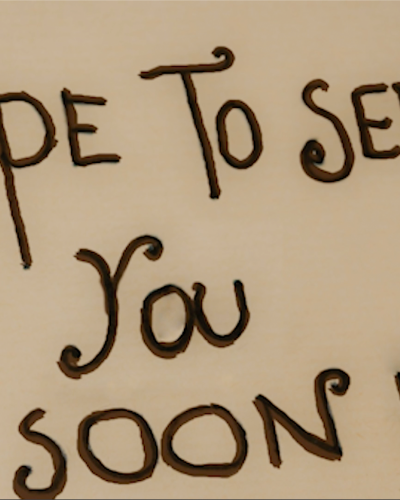 PE TO SE
YOU
SOON